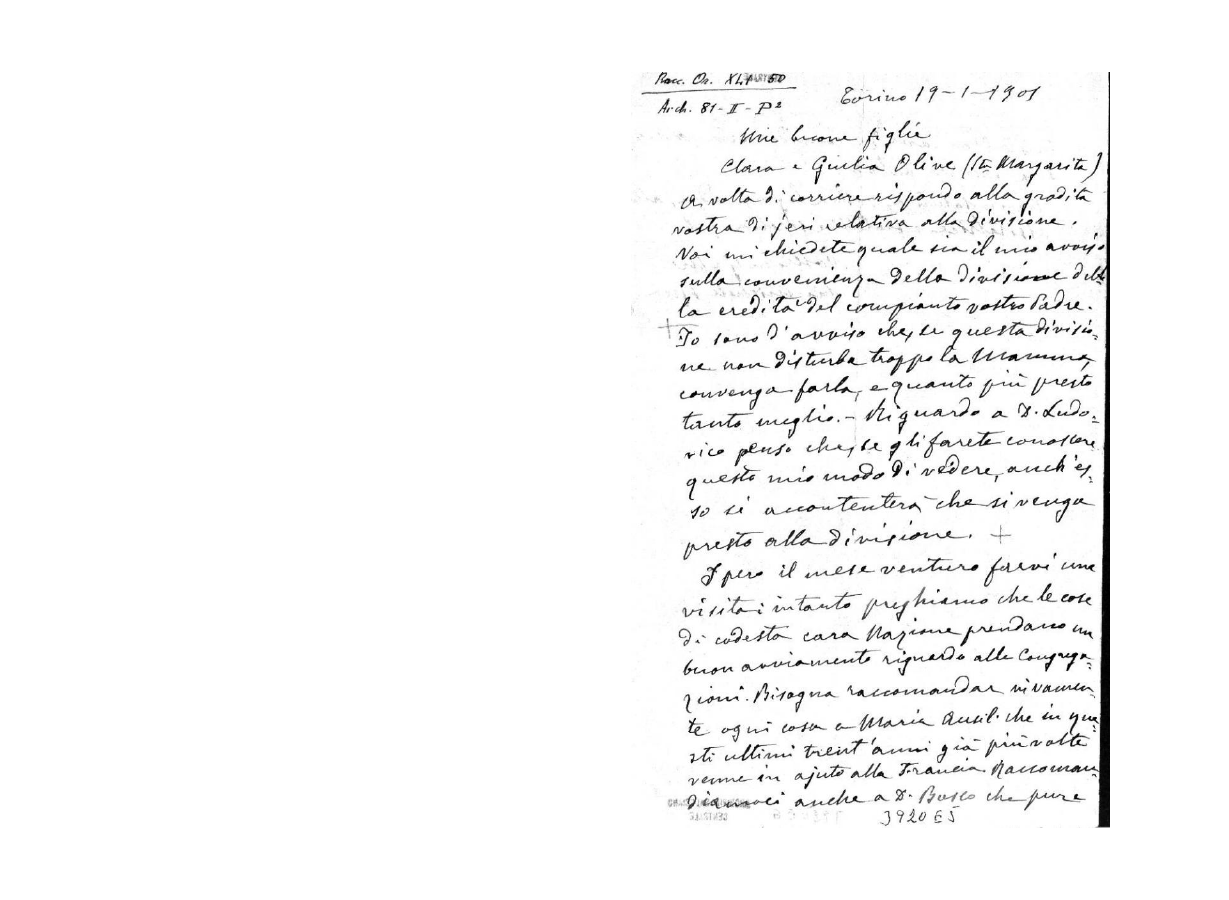 Racc. Or. XLI 50
Arch. 81-II-P²
Torino 19-1-1901
Mie buone figlie
Clara e Giulia Olive (Sta Margarita)
A volta di corriere rispondo alla gradita
vostra di jeri relativa alla divisione.
Voi mi chiedete quale sia il mio avviso
sulla convenienza della divisione del=
la eredità del compianto vostro Padre.
+ Io sono d'avviso che, se questa divisio=
ne non disturba troppo la Mamma,
convenga farla, e quanto più presto
tanto meglio. - Riguardo a D. Ludo=
vico penso che, se gli farete conoscere
questo mio modo di vedere, anch'es=
so si accontenterà che si venga
presto alla divisione. +
Spero il mese venturo farvi una
visita: intanto preghiamo che le cose
di codesta cara Nazione prendano un
buon avviamento riguardo alle Congrega=
zioni. Bisogna raccomandar vivamen=
te ogni cosa a Maria Ausil. che in que=
sti ultimi trent'anni già più volte
venne in ajuto alla Francia. Raccoman=
diamoci anche a D. Bosco che pure
CENTRALE
392065